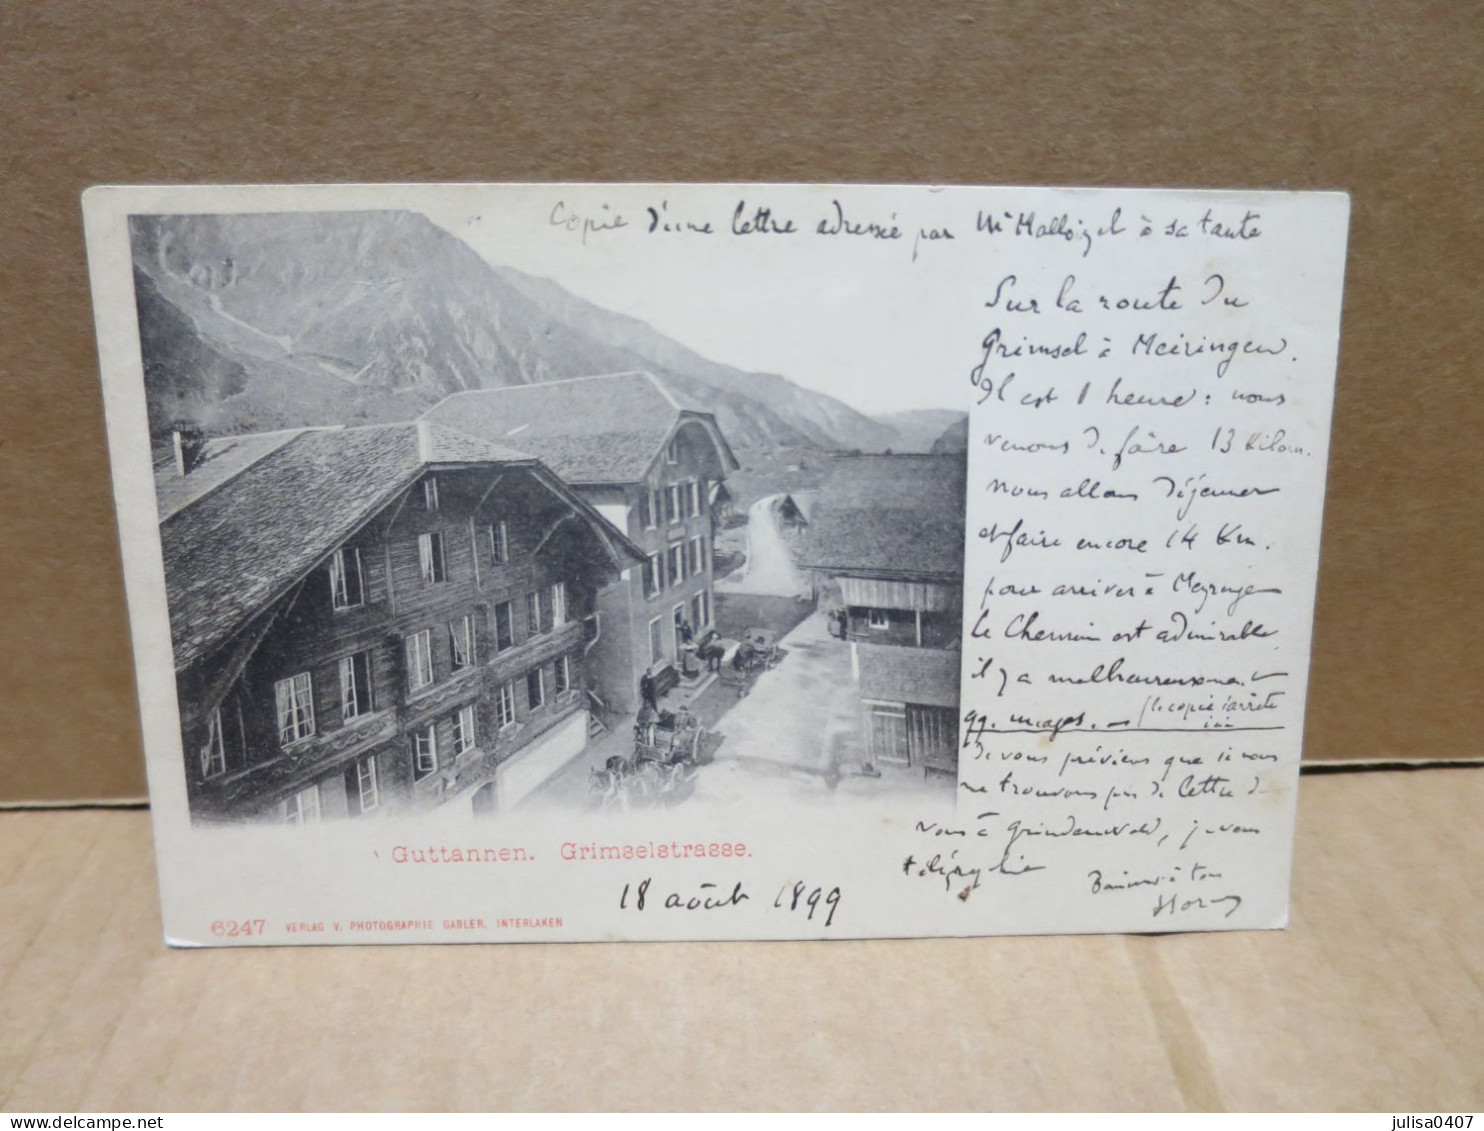 Copie d'une lettre adressée par Mr Malloizel à sa tante
Sur la route du
Grimsel à Meiringen.
Il est 1 heure : nous
venons de faire 13 kilom.
nous allons déjeuner
et faire encore 14 Km.
pour arriver à
le Chemin est admirable
il y a malheureusement
qq. nuages. — (la copie s'arrête
ici
Je vous préviens que si nous
ne trouvons pas de lettre de
vous à Grindelwald, je vous
télégraphie
Baisers à tous
Guttannen. Grimselstrasse.
18 août 1899
6247 VERLAG V. PHOTOGRAPHIE GABLER, INTERLAKEN
julisa0407